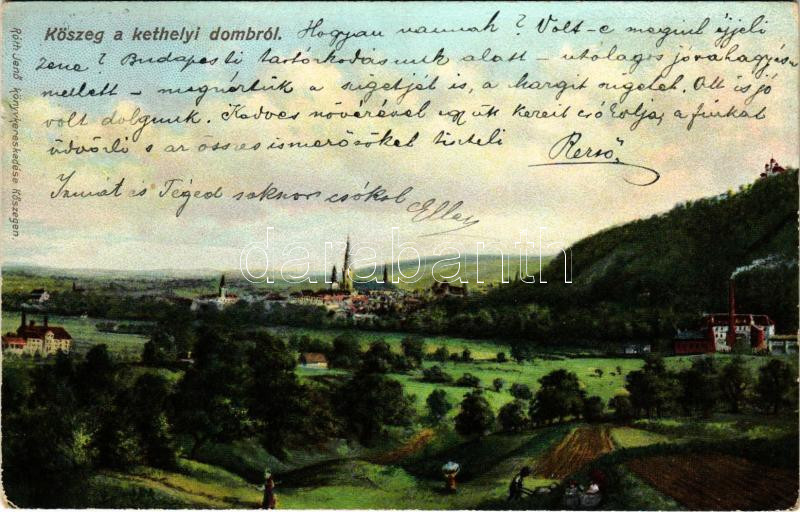 Kőszeg a kethelyi dombról. Hogyan vannak? Volt-e megint éjjeli
zene? Budapesti tartózkodásunk alatt – utólagos jóváhagyás
mellett – megnéztük a szigetjét is, a margit szigetet. Ott is jó
volt dolgunk. Kedves nővérével együtt kezeit csókolja, a fiúkat
üdvözli s az összes ismerősöket tiszteli
Rezső
Izmát és Téged sokszor csókol
Ella
Róth Jenő könyvkereskedése Kőszegen.
darabanth